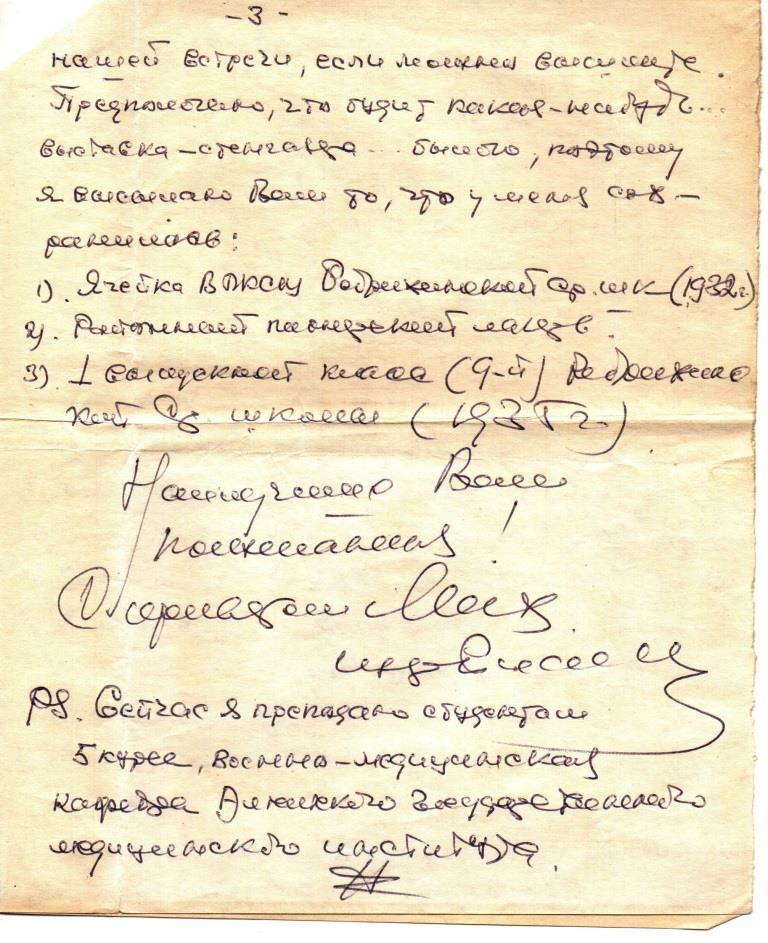 -3-
нашей встречи, если можно вышлите.
Предположено, что будет какая-нибудь...
выставка-стенгазета... былого, поэтому
я высылаю Вам то, что у меня сох-
ранилось:
1). Ячейка ВЛКСМ Ребрихинской ср. шк (1932г.)
2). Районный пионерский лагерь
3). 1 выпускной класс (9-й) Ребрихинс
кой Ср. школы (1935 г.)
Наилучшие Вам
пожелания!
PS. Сейчас я преподаю студентам
5 курса, военно-медицинская
кафедра Алтайского Государственного
медицинского института.